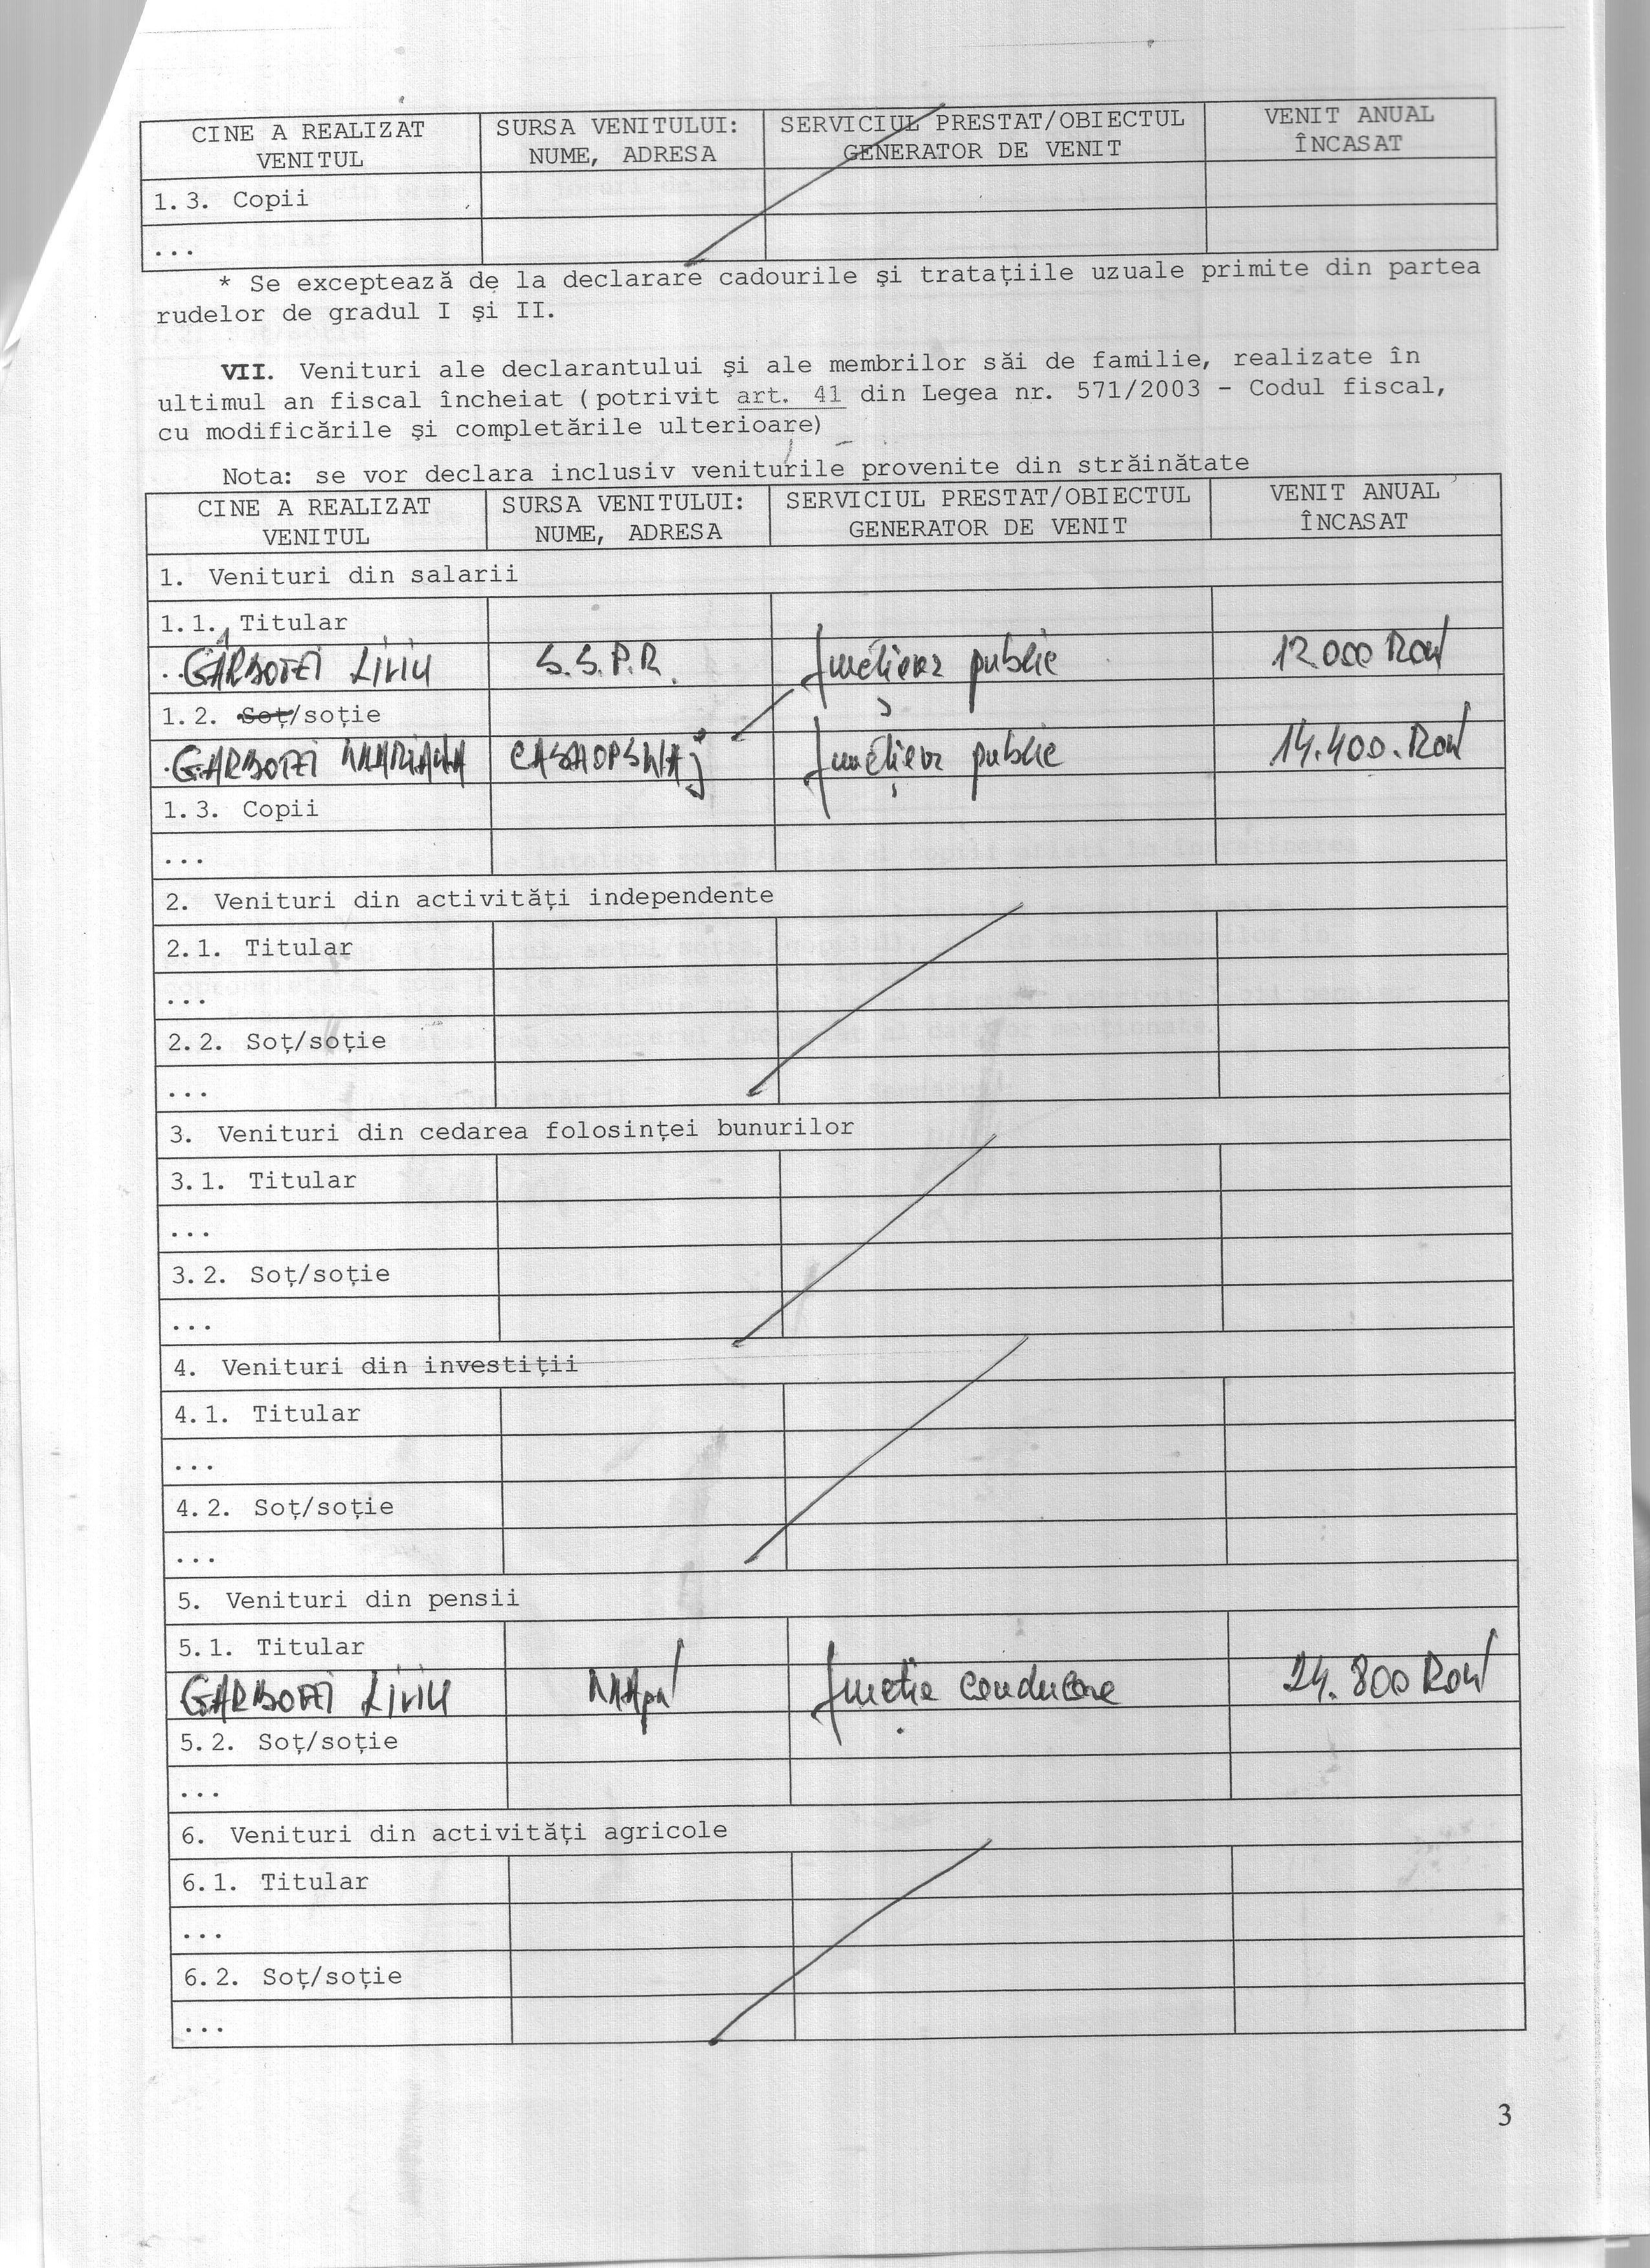 CINE A REALIZAT VENITUL SURSA VENITULUI: NUME, ADRESA SERVICIUL PRESTAT/OBIECTUL GENERATOR DE VENIT VENIT ANUAL ÎNCASAT
1.3. Copii
...
* Se exceptează de la declarare cadourile şi trataţiile uzuale primite din partea
rudelor de gradul I şi II.
VII. Venituri ale declarantului şi ale membrilor săi de familie, realizate în
ultimul an fiscal încheiat (potrivit art. 41 din Legea nr. 571/2003 - Codul fiscal,
cu modificările şi completările ulterioare)
Nota: se vor declara inclusiv veniturile provenite din străinătate
CINE A REALIZAT VENITUL SURSA VENITULUI: NUME, ADRESA SERVICIUL PRESTAT/OBIECTUL GENERATOR DE VENIT VENIT ANUAL ÎNCASAT
1. Venituri din salarii
1.1. Titular
GÂRBOTEI LIVIU S.S.P.R. funcţionar public 12.000 RON
1.2. Soţ/soţie
GARBOTEI MARIANA funcţionar public 14.400. RON
1.3. Copii
...
2. Venituri din activităţi independente
2.1. Titular
...
2.2. Soţ/soţie
...
3. Venituri din cedarea folosinţei bunurilor
3.1. Titular
...
3.2. Soţ/soţie
...
4. Venituri din investiţii
4.1. Titular
...
4.2. Soţ/soţie
...
5. Venituri din pensii
5.1. Titular
GARBOTEI LIVIU MApN funcţie conducere 24.800 RON
5.2. Soţ/soţie
...
6. Venituri din activităţi agricole
6.1. Titular
...
6.2. Soţ/soţie
...
3